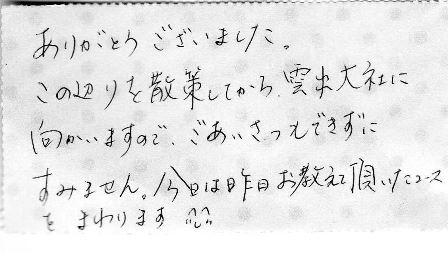 ありがとうございました。
この辺りを散策してから、雲出大社に
向かいますので、ごあいさつもできずに
すみません。今日は昨日お教えて頂いたコース
をまわります ^^